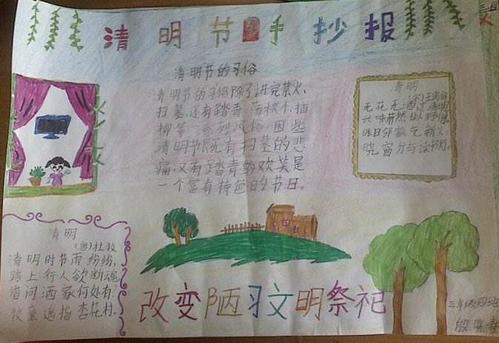 清明节手抄报
清明节的习俗
清明节的习俗除了讲究禁火、
扫墓，还有踏青、荡秋千、插
柳等一系列风俗
清明节既有扫墓的悲
痛，又有踏青的欢笑是
一个富有特色的节日。
清明
无花无酒
兴味萧然
昨日邻家乞新火
晓窗分与读书灯
清明
杜牧
清明时节雨纷纷，
路上行人欲断魂。
借问酒家何处有，
牧童遥指杏花村。
改变陋习文明祭祀